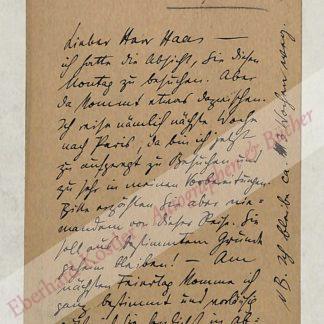 Lieber Herr Haas —
ich hatte die Absicht, Sie diesen
Montag zu besuchen. Aber
da kommt etwas dazwischen.
Ich reise nämlich nächste Woche
nach Paris, da bin ich jetzt
zu aufgeregt zu Besuchen und
zu sehr in meinen Vorbereitungen.
Bitte erzählen Sie aber nie-
mandem von dieser Reise. Sie
soll aus bestimmtem Grunde
geheim bleiben! — Am
nächsten Feiertag komme ich
ganz bestimmt und
NB. Ich bleibe ca. Wochen weg.
Eberhard Köstler Autographen & Bücher